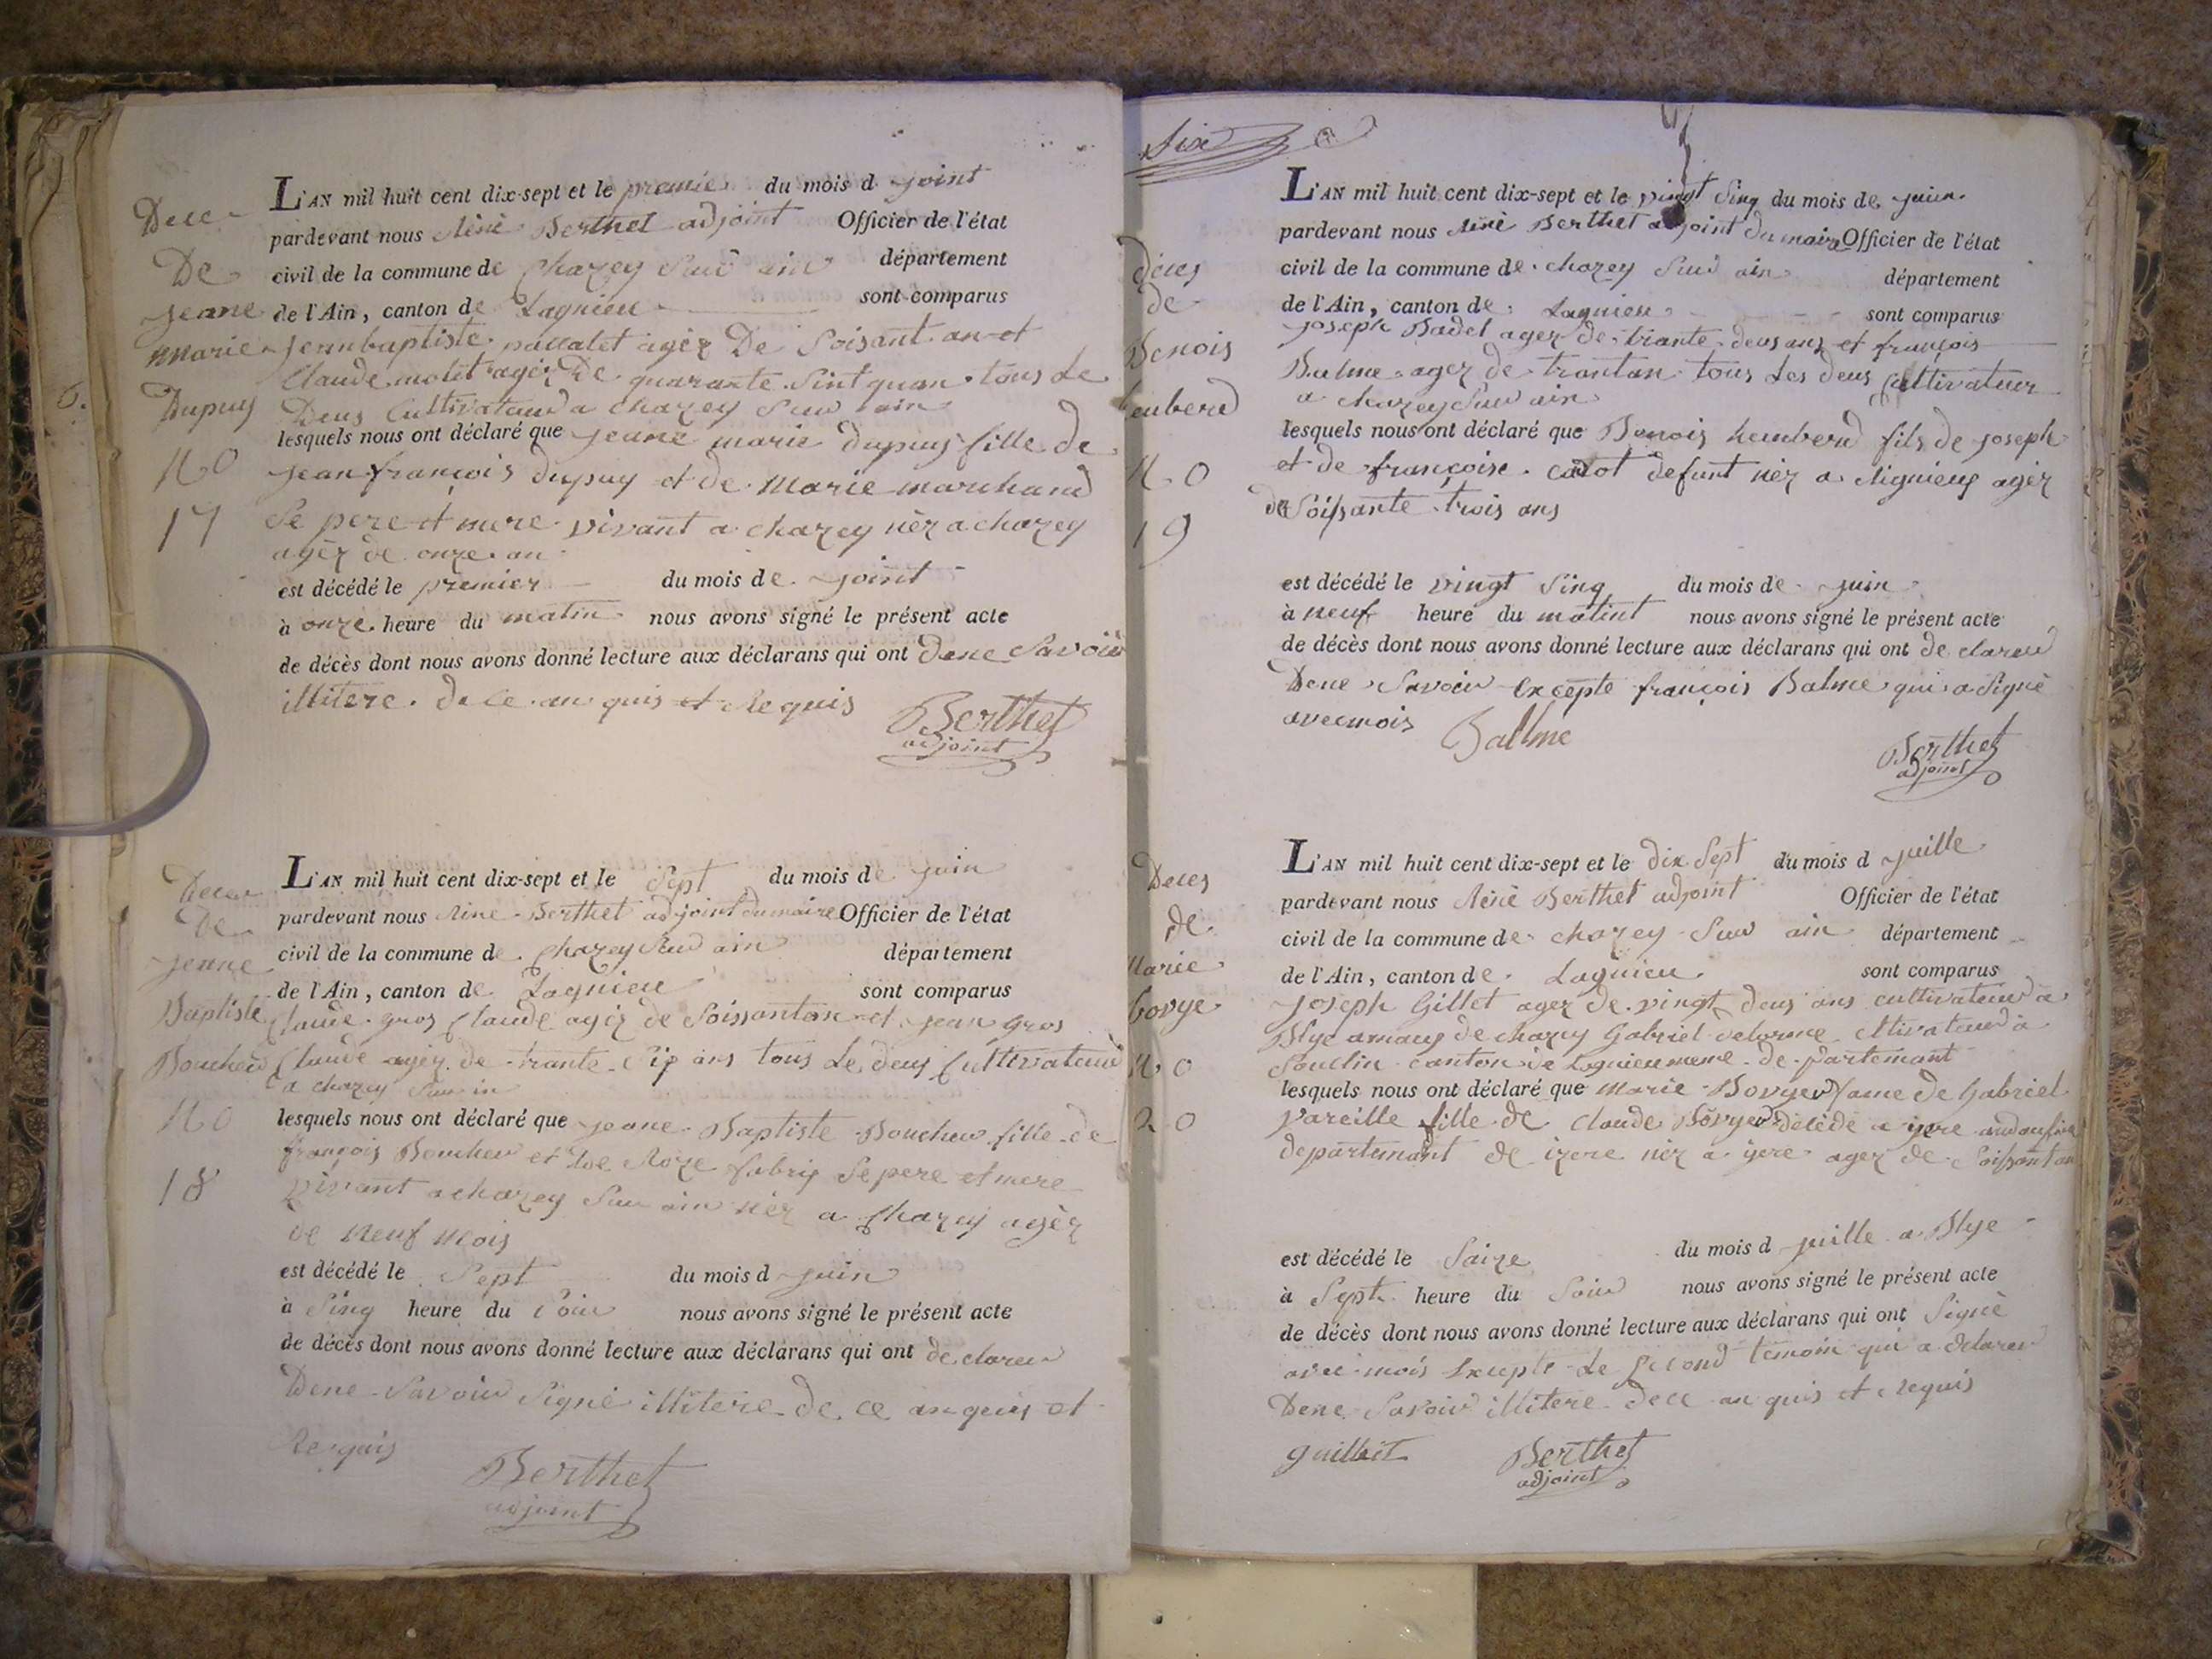 Dece
De
jeane
marie
Dupuy
No
17
L'AN mil huit cent dix-sept et le premier du mois d joint
pardevant nous Rènè Berthet adjoint Officier de l'état
civil de la commune de chazey Sur ain département
de l'Ain, canton de Lagnieu sont comparus
jeanbaptiste pallatet agéz De Soisant an et
Claude molit agéz De quarante Sint quan tous Le
Deus Cultivateur a chazey Sur ain
lesquels nous ont déclaré que jeane marie dupuy fille de
jean françois dupuy et de Marie marchand
Se pere et mere vivant a chazey nèz a chazey
agèz de onze an
est décédé le premier du mois de joint
à onze heure du matin nous avons signé le présent acte
de décès dont nous avons donné lecture aux déclarans qui ont dene Savoir
illitere de ce an quis et Requis
Berthet
adjoint
Deces
De
jeane
Baptiste
Boucher
No
18
L'AN mil huit cent dix-sept et le Sept du mois de juin
pardevant nous Rène Berthet adjoint du maire Officier de l'état
civil de la commune de Chazey Sur ain département
de l'Ain, canton de Lagnieu sont comparus
Claude gros Claude agéz de Soissantan et jean gros
Claude agéz de trante Six ans tous Le deus Cultivateur
a chazey Sur in
lesquels nous ont déclaré que jeane Baptiste Boucher fille de
françois Boucher et de Roze fabrix Sepere et mere
vivant a chazey Sur ain nèz a Chazey agèz
de Neuf Mois
est décédé le Sept du mois d juin
à Sinq heure du Soir nous avons signé le présent acte
de décès dont nous avons donné lecture aux déclarans qui ont declarer
Dene Savoir Signè illitere de ce anquis et
Requis
Berthet
adjoint
Six
Dèces
de
Benois
No
19
L'AN mil huit cent dix-sept et le vingt Sinq du mois de juin
pardevant nous Rènè Berthet adjoint du maire Officier de l'état
civil de la commune de chazey Sur ain département
de l'Ain, canton de Lagnieu sont comparus
joseph Badel agez de trante deus ans et françois
Balme agez de trantan tous Les deus Cultivateur
a chazey Sur ain
lesquels nous ont déclaré que Benois humberd fils de joseph
et de françoise defunt nèz a Rignieux agèz
de Soissante trois ans
est décédé le vingt Sinq du mois de juin
à neuf heure du matint nous avons signé le présent acte
de décès dont nous avons donné lecture aux déclarans qui ont de clarer
Dene Savoir Excepte françois Balme qui a Signè
avecmois Ballme
Berthet
adjoint
Deces
de
Marie
bovye
No
20
L'AN mil huit cent dix-sept et le dix Sept du mois d juille
pardevant nous Rènè Berthet adjoint Officier de l'état
civil de la commune de chazey Sur ain département
de l'Ain, canton de Lagnieu sont comparus
joseph Gillet agez de vingt deus ans cultivateur a
Blye amaus de chazey Gabriel delorme Cltivateur a
Souclin canton de Lagnieu meme de partemant
lesquels nous ont déclaré que marie Bovyer fame de Gabriel
Vareille fille de Claude Bovyer décédé a
departemant de izere nèz a agez de Soissantan
est décédé le Saize du mois d juille a Blye
à Sept heure du Soir nous avons signé le présent acte
de décès dont nous avons donné lecture aux déclarans qui ont Signè
avec mois Excepte Le Second temoin qui a declarer
Dene Savoir illitere dece an quis et Requis
guilliet Berthet
adjoint